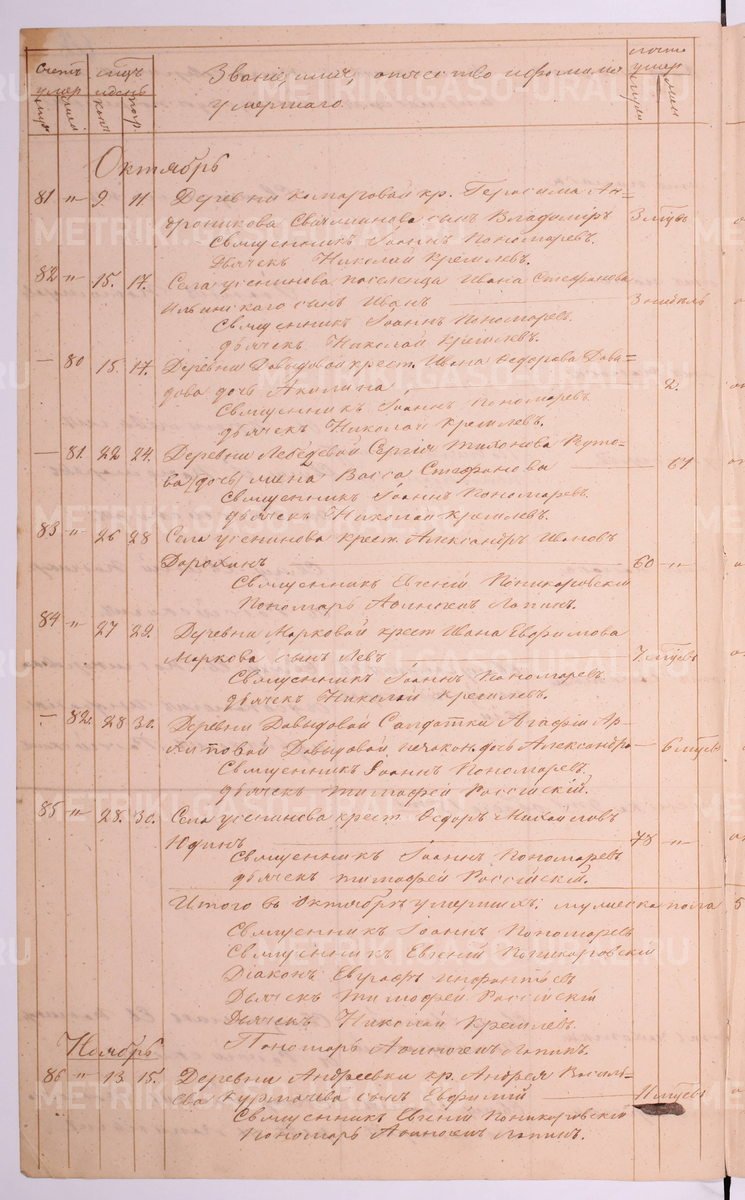 Счетъ умер.
муж. жен.
смерт. погр.
Званіе, имя, отчество и фамилія
умершаго.
Октябрь
81 " 9. 11 Деревни Комаровой кр. Герасима Ан=
дроникова сынъ Владиміръ 3 мѣс
Священникъ Іоаннъ Пономаревъ.
Дьячекъ Николай Кремлевъ.
82 " 15. 17. Села Усенинова поселенца Ивана Стефанова
Ильинскаго сынъ Иванъ 3
Священникъ Іоаннъ Пономаревъ.
дьячекъ Николай Кремлевъ.
— 80 15. 17. Деревни Давыдовой крест. Ивана Ѳедорова Давы=
дова дочь Акилина 2.
Священникъ Іоаннъ Пономаревъ
дьячекъ Николай Кремлевъ.
— 81. 22 24. Деревни Лебедевой Сергія Тихонова
(дочь) жена Васса Стефанова — 61
Священникъ Іоаннъ Пономаревъ.
дьячекъ Николай Кремлевъ.
83 " 26 28 Села Усенинова крест. Александръ Ивановъ
Дорохинъ 60 "
Священникъ Евгеній
Пономарь Лапинъ.
84 " 27 29. Деревни Марковой крест Ивана Евфимова
Маркова сынъ Левъ 7 мѣс
Священникъ Іоаннъ Пономаревъ
дьячекъ Николай Кремлевъ.
— 82. 28 30. Деревни Давыдовой Солдатки Агафіи
Давыдовой незакон. дочь Александра — 6 мѣс
Священникъ Іоаннъ Пономаревъ.
дьячекъ Тимофей Россійскій.
85 " 28. 30. Села Усенинова крест. Ѳедоръ Михайловъ
Юдинъ 78 "
Священникъ Іоаннъ Пономаревъ
дьячекъ Тимофей Россійскій.
Итого въ Октябрѣ умершихъ: мужеска пола 5
Священникъ Іоаннъ Пономаревъ
Священникъ Евгеній
Діаконъ Евграфъ Инфантьевъ
Дьячекъ Тимофей Россійскій
Дьячекъ Николай Кремлевъ.
Пономарь Лапинъ.
Ноябрь
86 " 13 15. Деревни Андреевки кр. Андрея Василь=
ева Курмачева сынъ Евфимій 11 мѣс
Священникъ Евгеній
Пономарь Лапинъ.
METRIKI.GASO-URAL.RU